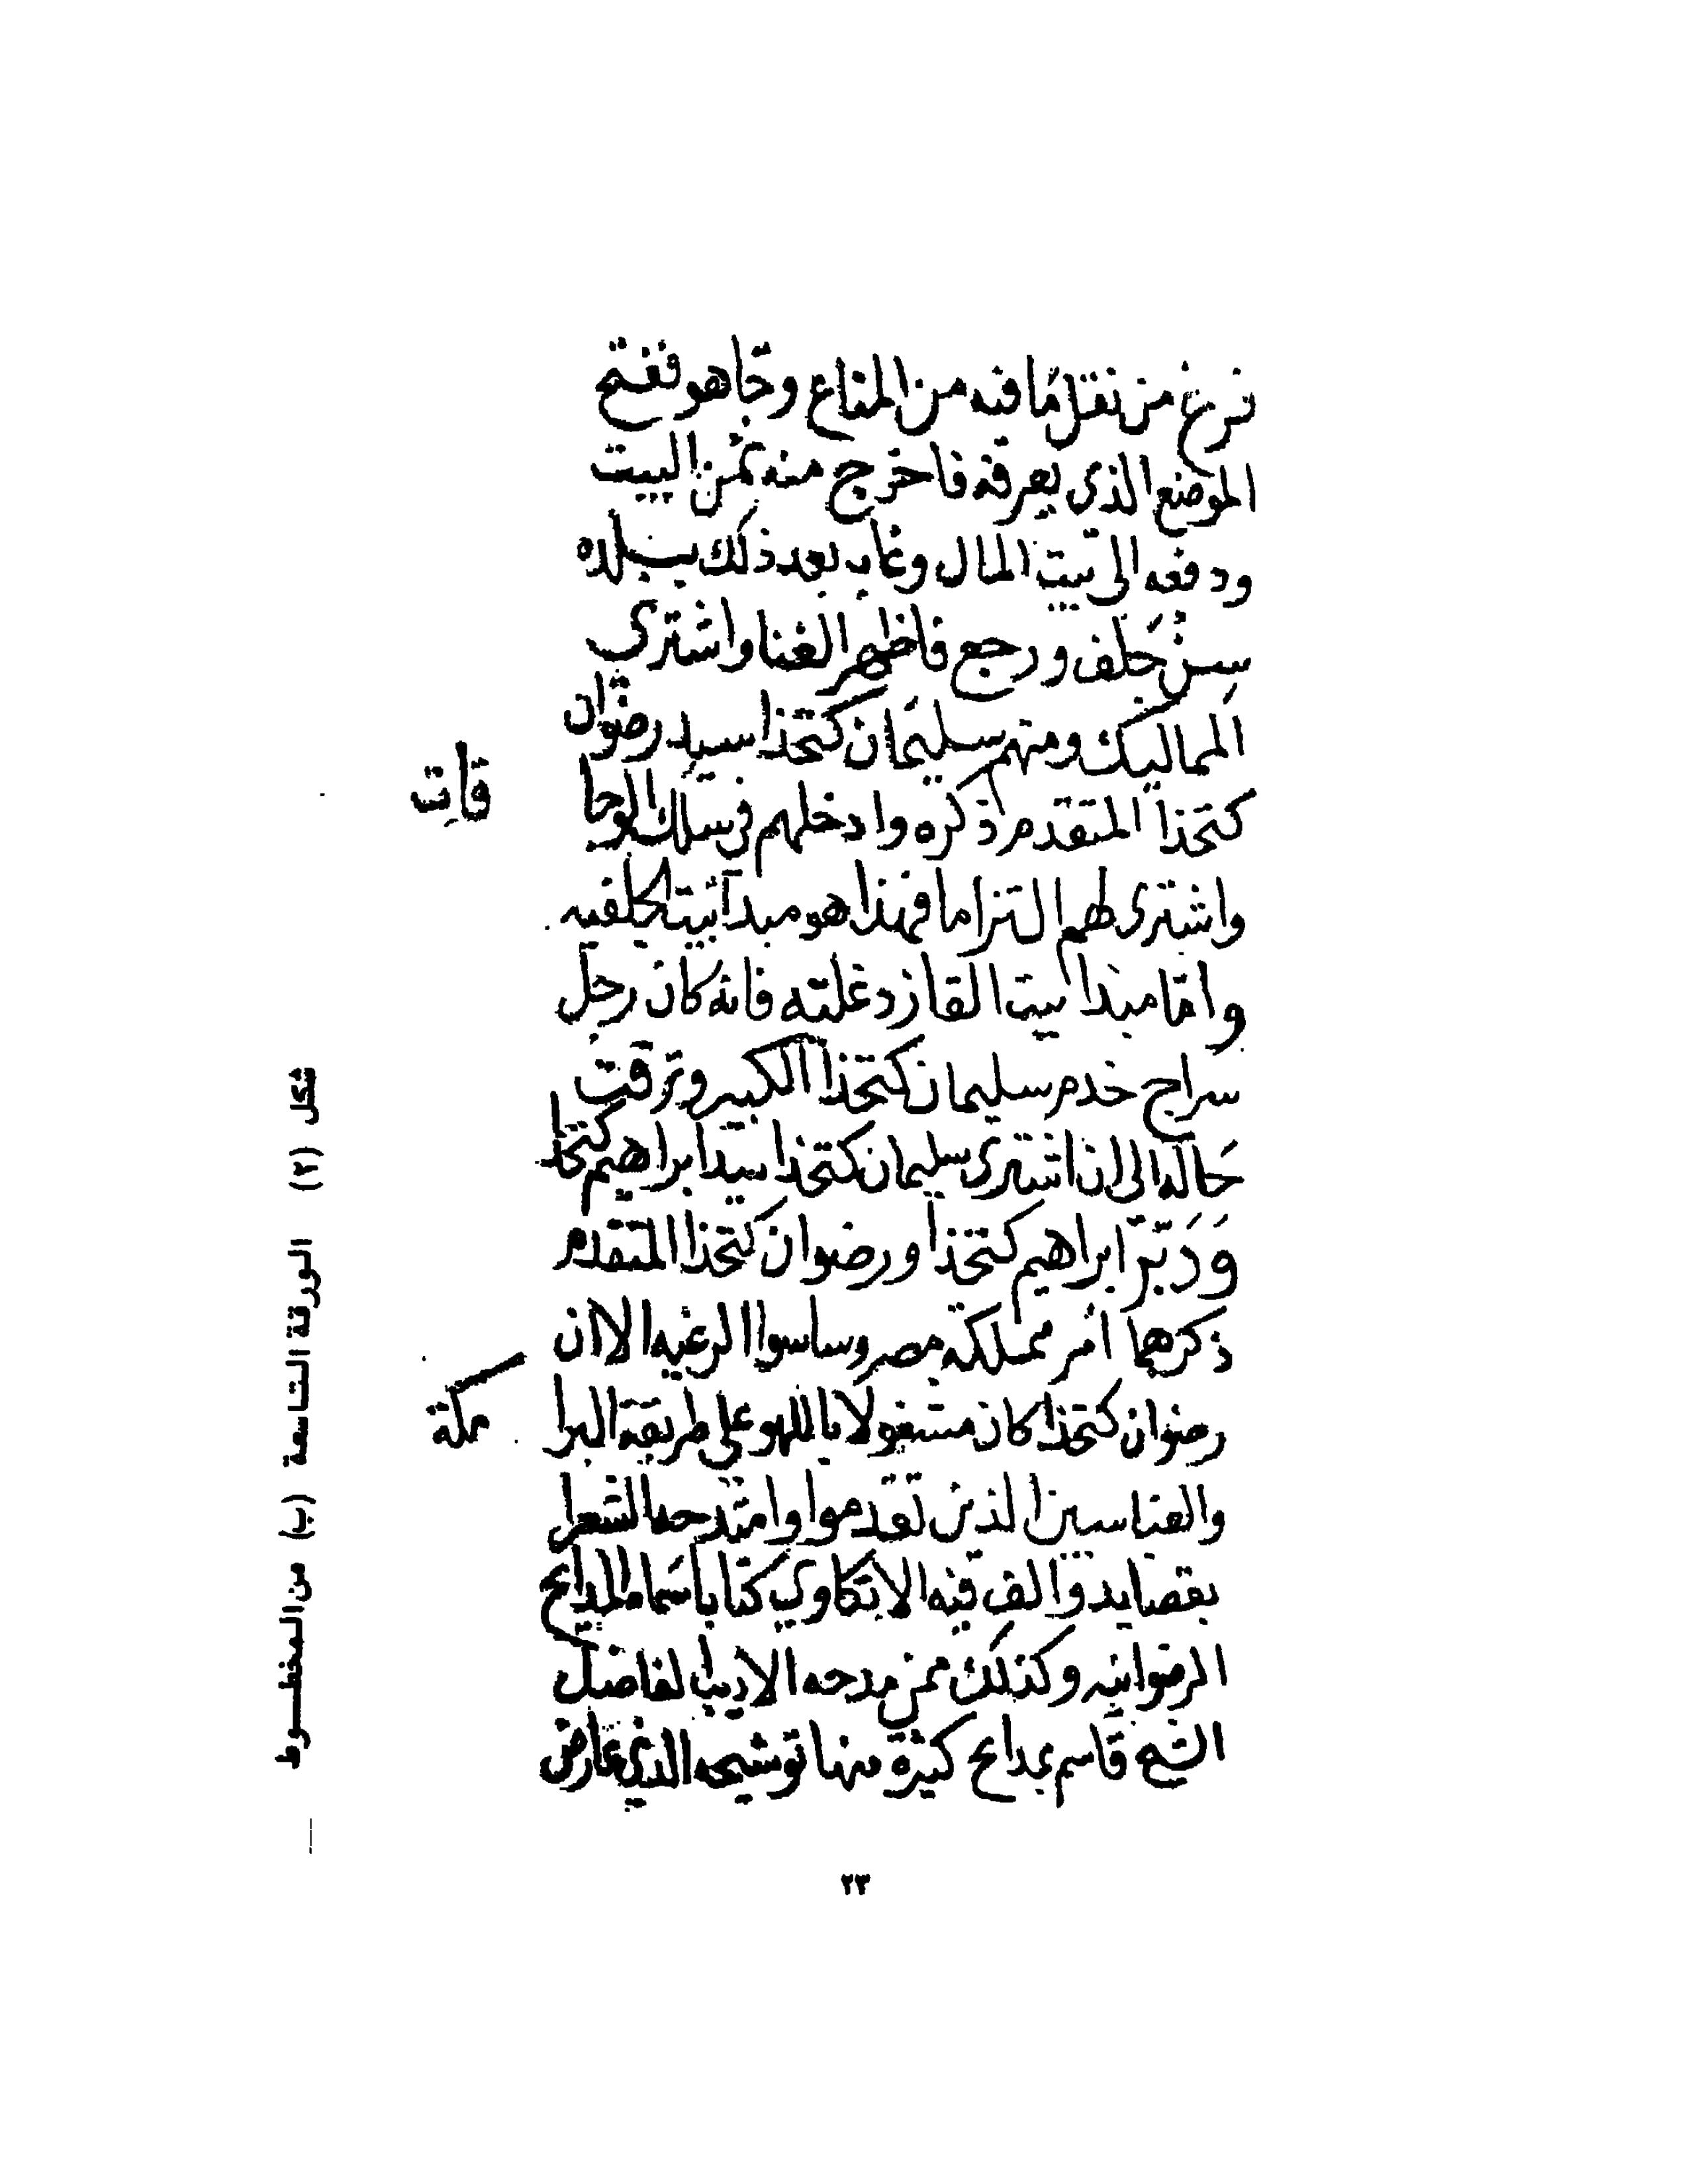 فرغ من نقل ما فيه من المتاع وجا هو ففتح
الموضع الذي يعرفه فاخرج منه ثمن البيت
ودفعه الى بيت المال وغاب بعد ذلك ببلده
سنجلف ورجع فاظهر الغنا واشترى
المماليك ومنهم سليمان كتخذا سيد رضوان
كتخذا المتقدم ذكره وادخلهم في سلك الوجا
قات
واشترى لهم التزاما فهذا هو مبدا بيت الجلفيه
واما مبدا بيت القازدغلته فانه كان رجل
سراج خدم سليمان كتخذا الكبير وترقت
حاله الى ان اشترى سليمان كتخذا سيد ابراهيم كتخذا
ودبر ابراهيم كتخذا ورضوان كتخذا المتقدم
ذكرهما امر مملكة مصر وساسوا الرعيه الا ان
رضوان كتخذا كان مشغولا باللهو على طريقة البرا
مكة
والعباسيين الذين تقدموا وامتدحه الشعرا
بقصايد والف فيه الادكاوي كتابا سماه المدايح
الرضوانيه وكذلك ممن مدحه الاديب الفاضل
الشيخ قاسم بمدايح كثيرة منها توشيحه الذي عارض
شكل (٢) الورقة التاسعة (ب) من المخطوط
٢٣